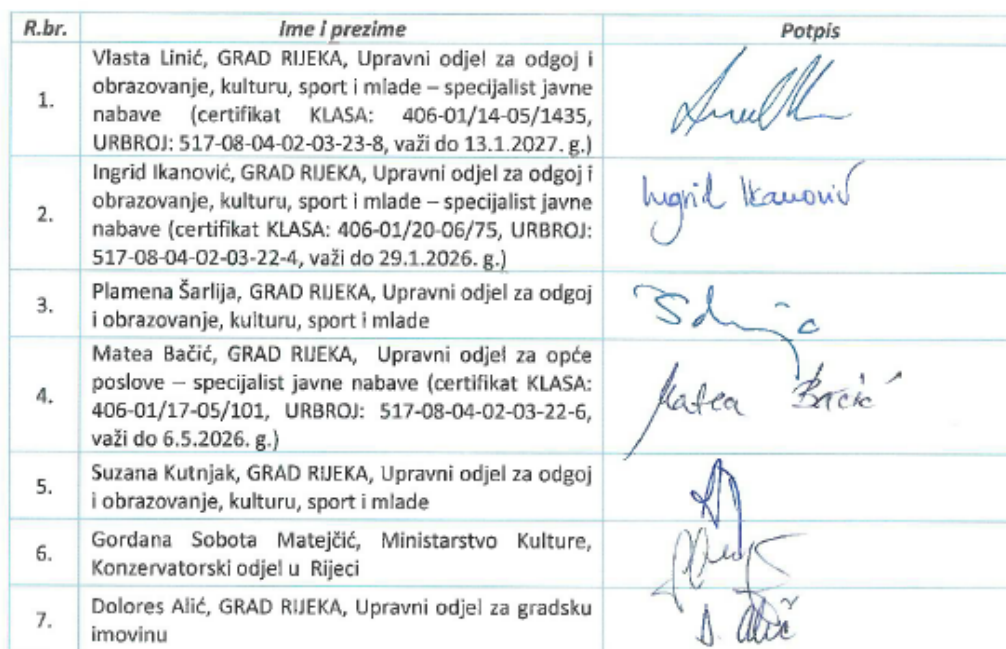 R.br. Ime i prezime Potpis
1. Vlasta Linić, GRAD RIJEKA, Upravni odjel za odgoj i
obrazovanje, kulturu, sport i mlade – specijalist javne
nabave (certifikat KLASA: 406-01/14-05/1435,
URBROJ: 517-08-04-02-03-23-8, važi do 13.1.2027. g.)
2. Ingrid Ikanović, GRAD RIJEKA, Upravni odjel za odgoj i
obrazovanje, kulturu, sport i mlade – specijalist javne
nabave (certifikat KLASA: 406-01/20-06/75, URBROJ:
517-08-04-02-03-22-4, važi do 29.1.2026. g.)
Ingrid Ikanović
3. Plamena Šarlija, GRAD RIJEKA, Upravni odjel za odgoj
i obrazovanje, kulturu, sport i mlade
4. Matea Bačić, GRAD RIJEKA, Upravni odjel za opće
poslove – specijalist javne nabave (certifikat KLASA:
406-01/17-05/101, URBROJ: 517-08-04-02-03-22-6,
važi do 6.5.2026. g.)
Matea Bačić
5. Suzana Kutnjak, GRAD RIJEKA, Upravni odjel za odgoj
i obrazovanje, kulturu, sport i mlade
6. Gordana Sobota Matejčić, Ministarstvo Kulture,
Konzervatorski odjel u Rijeci
7. Dolores Alić, GRAD RIJEKA, Upravni odjel za gradsku
imovinu
D. Alić